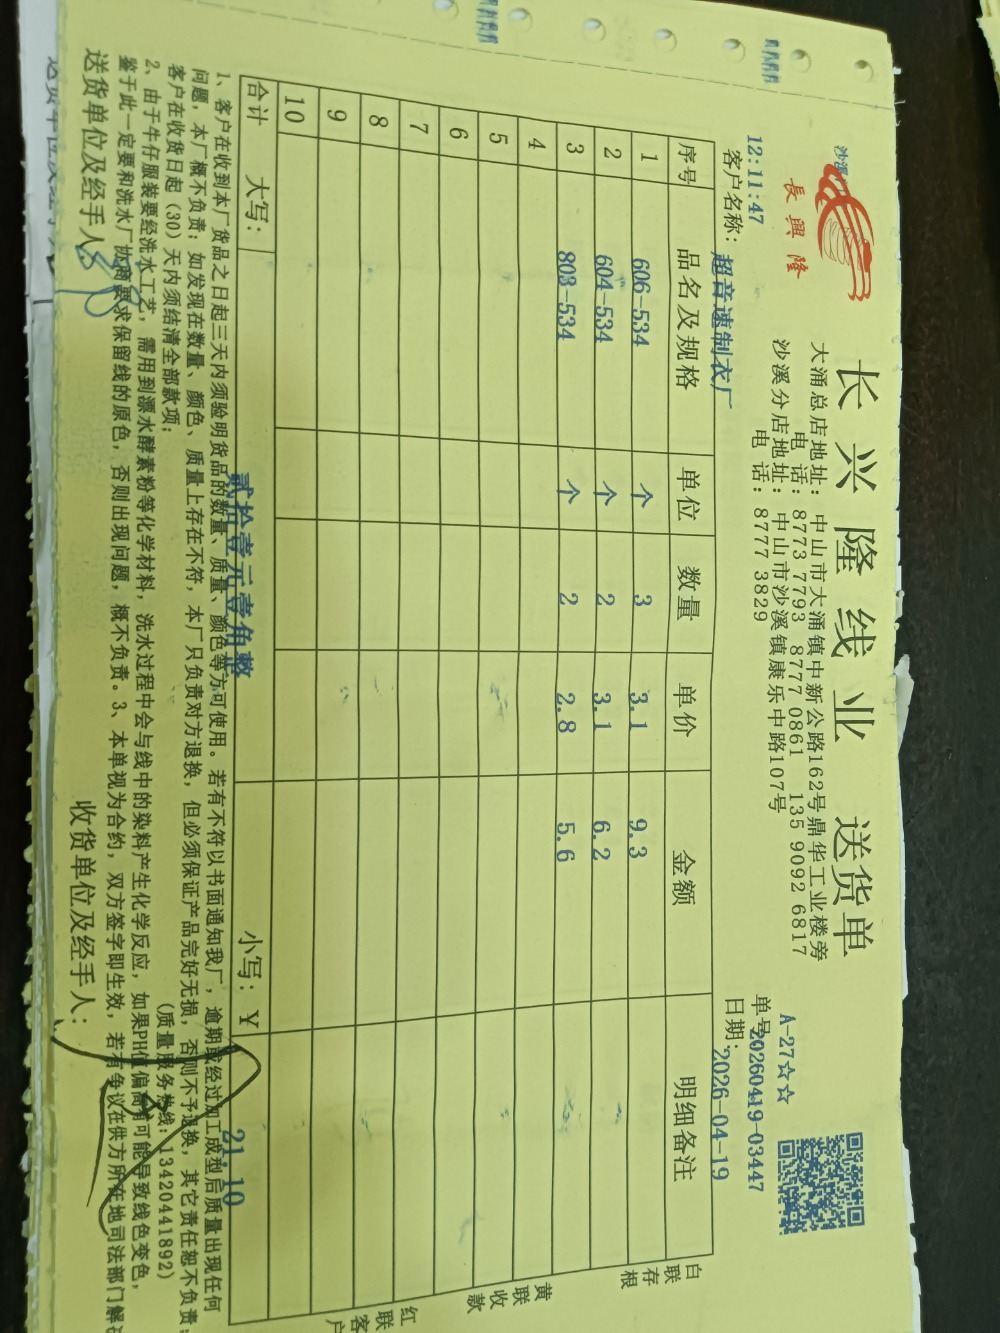 沙溪
長興隆
长兴隆线业 送货单
大涌总店地址：中山市大涌镇中新公路162号鼎华工业楼旁
电 话：8773 7793 8777 0861 135 9092 6817
沙溪分店地址：中山市沙溪镇康乐中路107号
电 话：8777 3829
A-27☆☆
单号20260419-03447
12:11:47
客户名称：超音速制衣厂
日期：2026-04-19
序号 品名及规格 单位 数量 单价 金额 明细备注
1 606-534 个 3 3.1 9.3
2 604-534 个 2 3.1 6.2
3 803-534 个 2 2.8 5.6
4
5
6
7
8
9
10
合计 大写：贰拾壹元壹角整 小写：¥ 21.10
白联存根
黄联收款
红联客户
1、客户在收到本厂货品之日起三天内须验明货品的数量、质量、颜色等方可使用。若有不符以书面通知我厂，逾期或经过加工成型后质量出现任何
问题，本厂概不负责；如发现在数量、颜色、质量上存在不符，本厂只负责对方退换，但必须保证产品完好无损，否则不予退换，其它责任恕不负责；
客户在收货日起（30）天内须结清全部款项；
（质量服务热线：13420441892）
2、由于牛仔服装要经洗水工艺，需用到漂水酵素粉等化学材料，洗水过程中会与线中的染料产生化学反应，如果PH值偏高有可能导致线色变色，
鉴于此一定要和洗水厂协商要求保留线的原色，否则出现问题，概不负责。3、本单视为合约，双方签字即生效，若有争议在供方所在地司法部门解
送货单位及经手人：
收货单位及经手人：